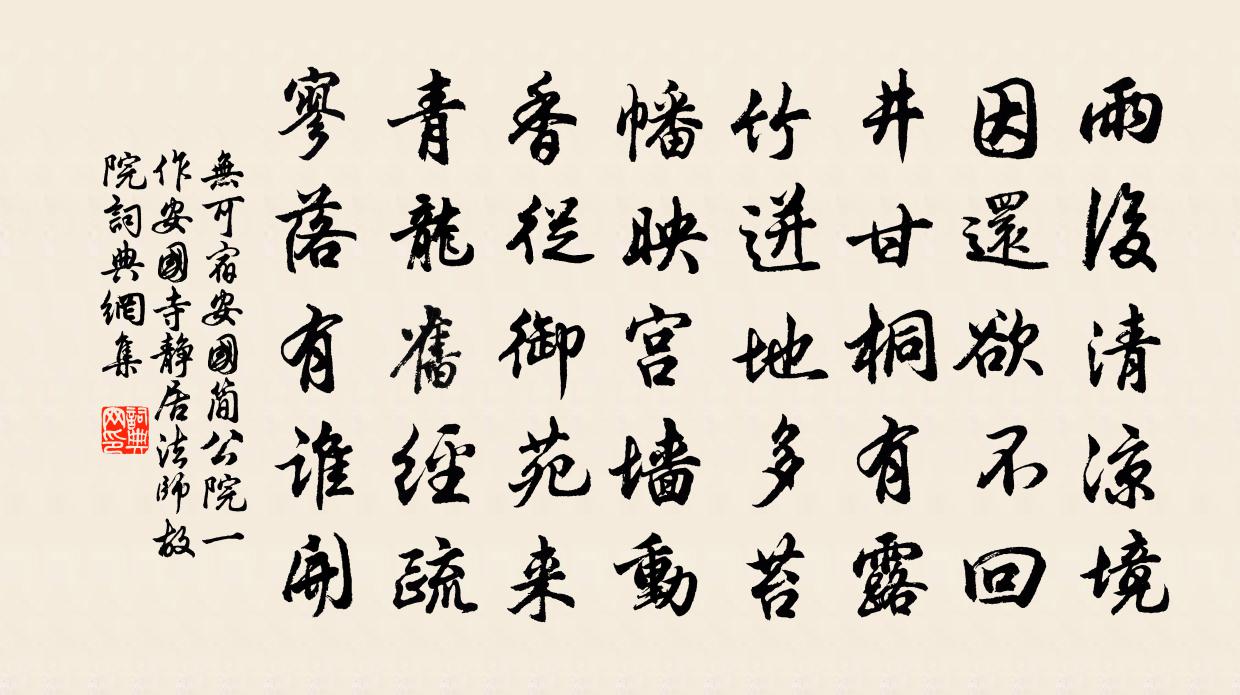 雨後清涼境
因還欲不回
井甘桐有露
竹迸地多苔
幡映宮墻動
香從御苑来
青龍舊經疏
寥落有誰開
無可宿安國簡公院一
作安國寺靜居法師故
院詞典網集
詞典網印